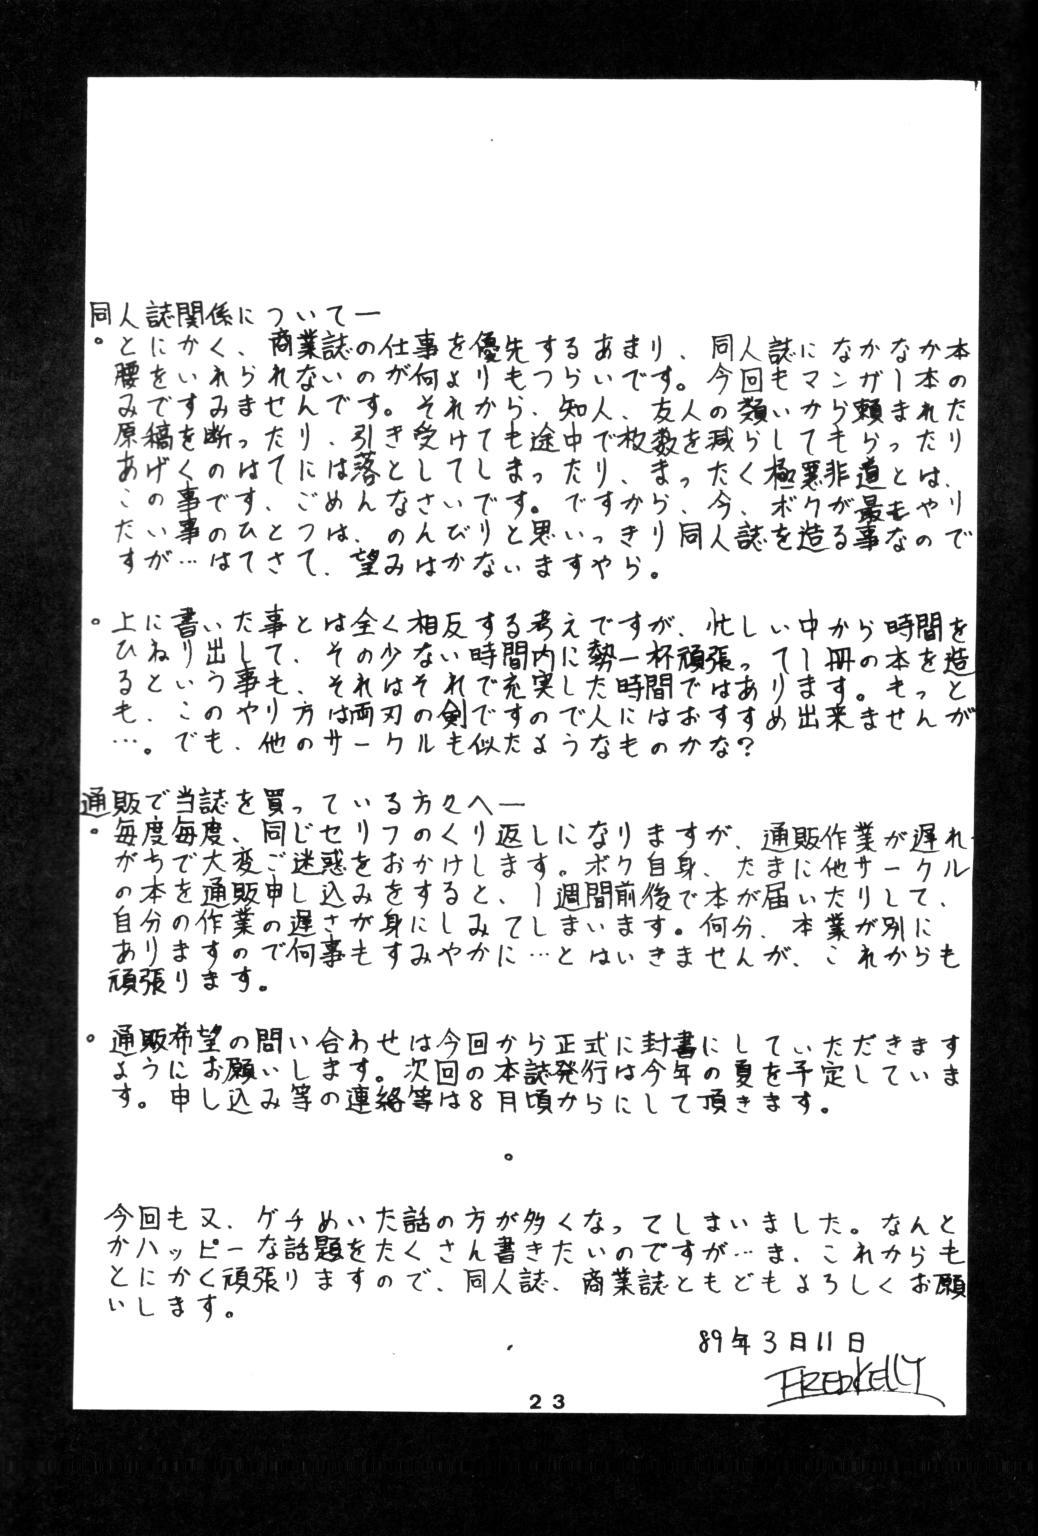 同人誌関係について一
。とにかく、商業誌の仕事を優先するあまり、同人誌になかなか本
腰をいれられないのが何よりもつらいです。今回もマンガ1本の
みですみませんです。それから、知人、友人の類いから頼まれた
原稿を断ったり、引き受けても途中で枚数を減らしてもらったり
あげくのはてには落としてしまったり、まったく極悪非道とは、
この事です、ごめんなさいです。ですから、今、ボクが最もやり
たい事のひとつは、のんびりと思いっきり同人誌を造る事なので
すが…はてさて、望みはかないますやら。
。上に書いた事とは全く相反する考えですが、忙しい中から時間を
ひねり出して、その少ない時間内に勢一杯頑張って1冊の本を造
るという事も、それはそれで充実した時間ではあります。もっと
も、このやり方は両刃の剣ですので人にはおすすめ出来ませんが
…。でも、他のサークルも似たようなものかな?
通販で当誌を買っている方々へ一
。毎度毎度、同じセリフのくり返しになりますが、通販作業が遅れ
がちで大変ご迷惑をおかけします。ボク自身、たまに他サークル
の本を通販申し込みをすると、1週間前後で本が届いたりして、
自分の作業の遅さが身にしみてしまいます。何分、本業が別に
ありますので何事もすみやかに…とはいきませんが、これからも
頑張ります。
。通販希望の問い合わせは今回から正式に封書にしていただきます
ようにお願いします。次回の本誌発行は今年の夏を予定していま
す。申し込み等の連絡等は8月頃からにして頂きます。
。
今回も又、ゲチめいた話の方が多くなってしまいました。なんと
かハッピーな話題をたくさん書きたいのですが…ま、これからも
とにかく頑張りますので、同人誌、商業誌ともどもよろしくお願
いします。
89年3月11日
FREDKELLY
23